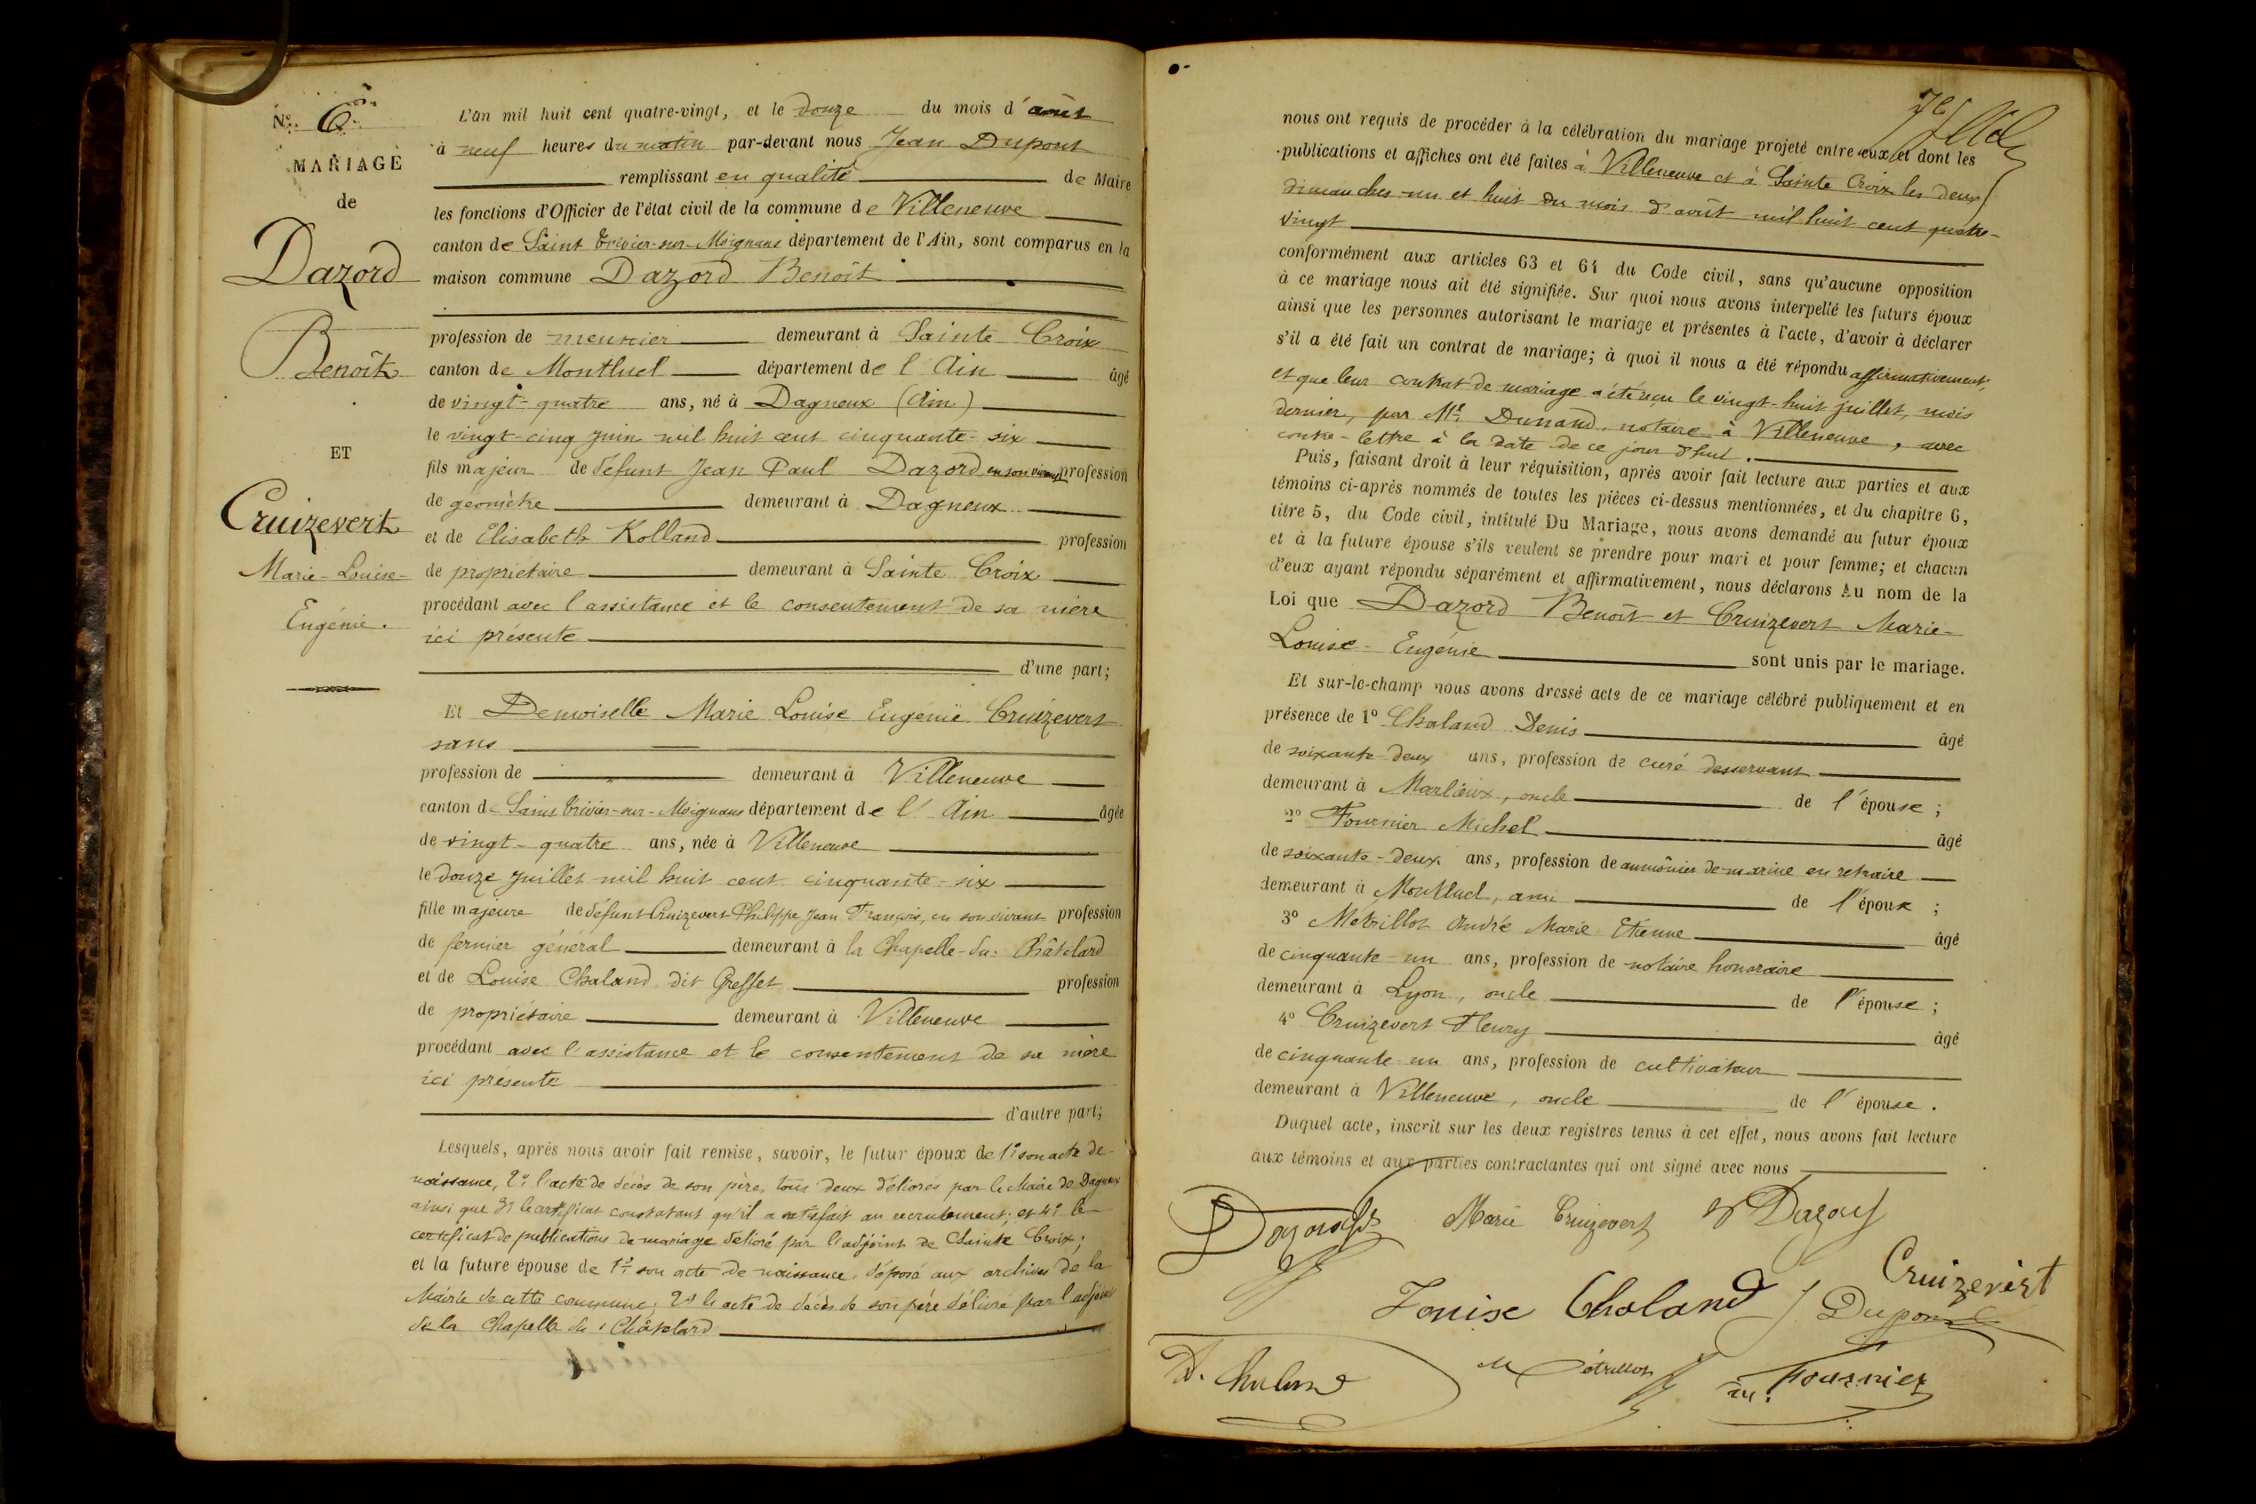 N° 6
MARIAGE
de
Dazord
Benoît
ET
Cruizevert
Marie-Louise-
Eugénie.
L'an mil huit cent quatre-vingt, et le douze du mois d'août
à neuf heures du matin par-devant nous Jean Dupont
remplissant en qualité de Maire
les fonctions d'Officier de l'état civil de la commune de Villeneuve
canton de Saint Trivier-sur-Moignans département de l'Ain, sont comparus en la
maison commune Dazord Benoît
profession de meunier demeurant à Sainte Croix
canton de Montluel département de l'Ain âgé
de vingt-quatre ans, né à Dagneux (Ain)
le vingt-cinq juin mil huit cent cinquante-six
fils majeur de défunt Jean Paul Dazord en son vivant profession
de géomètre demeurant à Dagneux
et de Elisabeth Kolland profession
de propriétaire demeurant à Sainte Croix
procédant avec l'assistance et le consentement de sa mère
ici présente
d'une part;
Et Demoiselle Marie Louise Eugénie Cruizevert
sans
profession de demeurant à Villeneuve
canton de Saint Trivier-sur-Moignans département de l'Ain âgée
de vingt-quatre ans, née à Villeneuve
le douze juillet mil huit cent cinquante-six
fille majeure de défunt Cruizevert Philippe Jean François, en son vivant profession
de fermier général demeurant à la Chapelle-du-Châtelard
et de Louise Chaland dit Greffet profession
de propriétaire demeurant à Villeneuve
procédant avec l'assistance et le consentement de sa mère
ici présente
d'autre part;
Lesquels, après nous avoir fait remise, savoir, le futur époux de 1° son acte de
naissance, 2° l'acte de décès de son père, tous deux délivrés par le Maire de Dagneux
ainsi que 3° le certificat constatant qu'il a satisfait au recrutement; et 4° le
certificat de publications de mariage délivré par l'adjoint de Sainte Croix;
et la future épouse de 1° son acte de naissance déposé aux archives de la
Mairie de cette commune; 2° l'acte de décès de son père délivré par l'adjoint
de la Chapelle du Châtelard
nous ont requis de procéder à la célébration du mariage projeté entre eux et dont les
publications et affiches ont été faites à Villeneuve et à Sainte Croix les deux
dimanches un et huit du mois d'août mil huit cent quatre-
vingt
conformément aux articles 63 et 64 du Code civil, sans qu'aucune opposition
à ce mariage nous ait été signifiée. Sur quoi nous avons interpellé les futurs époux
ainsi que les personnes autorisant le mariage et présentes à l'acte, d'avoir à déclarer
s'il a été fait un contrat de mariage; à quoi il nous a été répondu affirmativement,
et que leur contrat de mariage a été reçu le vingt-huit juillet, mois
dernier, par Me Dunand, notaire à Villeneuve, avec
contre-lettre à la date de ce jour d'hui.
Puis, faisant droit à leur réquisition, après avoir fait lecture aux parties et aux
témoins ci-après nommés de toutes les pièces ci-dessus mentionnées, et du chapitre 6,
titre 5, du Code civil, intitulé Du Mariage, nous avons demandé au futur époux
et à la future épouse s'ils veulent se prendre pour mari et pour femme; et chacun
d'eux ayant répondu séparément et affirmativement, nous déclarons Au nom de la
Loi que Dazord Benoît et Cruizevert Marie-
Louise-Eugénie sont unis par le mariage.
Et sur-le-champ nous avons dressé acte de ce mariage célébré publiquement et en
présence de 1° Chaland Denis âgé
de soixante deux ans, profession de curé desservant
demeurant à Marlieux, oncle de l'épouse;
2° Fournier Michel âgé
de soixante-deux ans, profession de aumônier de marine en retraite
demeurant à Montluel, ami de l'époux;
3° Metrillot André Marie Etienne âgé
de cinquante-un ans, profession de notaire honoraire
demeurant à Lyon, oncle de l'épouse;
4° Cruizevert Fleury âgé
de cinquante un ans, profession de cultivateur
demeurant à Villeneuve, oncle de l'épouse.
Duquel acte, inscrit sur les deux registres tenus à cet effet, nous avons fait lecture
aux témoins et aux parties contractantes qui ont signé avec nous
Marie Cruizevert
Cruizevert
Louise Chaland Dupont
D. Chaland Métrillot Fournier